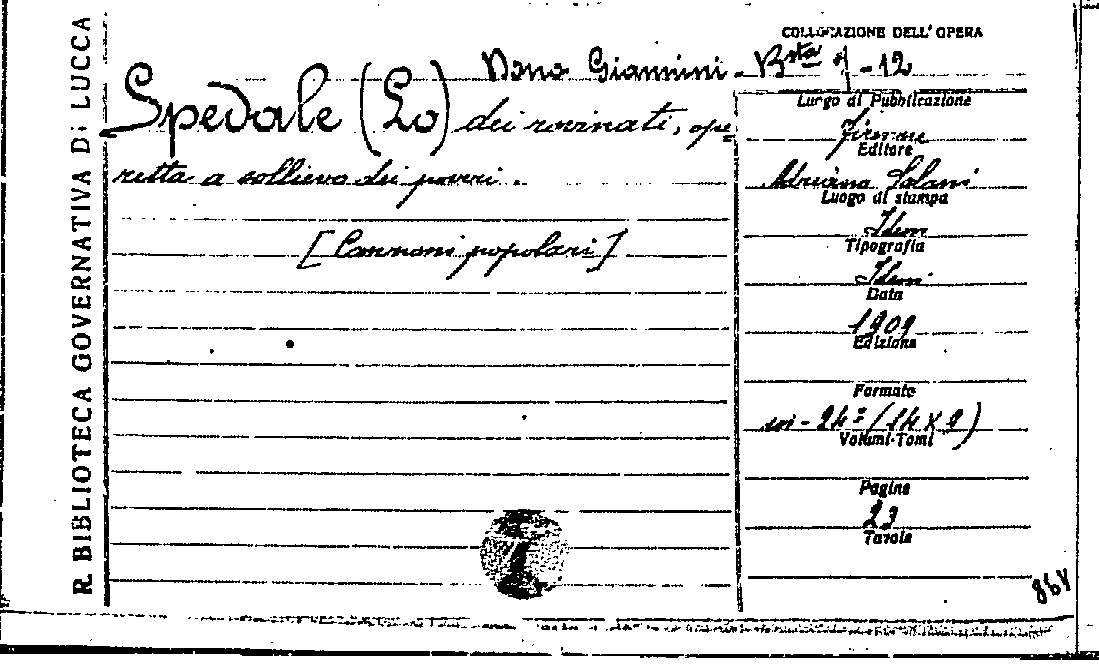 R. BIBLIOTECA GOVERNATIVA DI LUCCA
COLLOCAZIONE DELL'OPERA
Dono Giannini - Bsta - 12
Spedale (Lo) dei rovinati, ope
retta a sollievo dei poveri.
[Canzoni popolari]
Luogo di Pubblicazione
Firenze
Editore
Adriano Salani
Luogo di stampa
Idem
Tipografia
Idem
Data
1909
Edizione
Formato
in-24º (14 X 9)
Volumi-Tomi
Pagine
23
Tavole